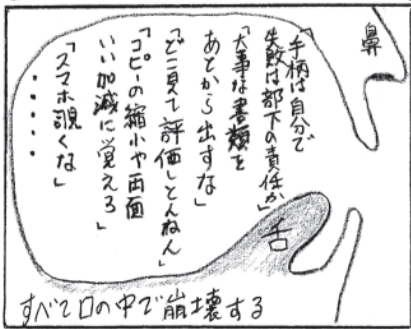 鼻
「手柄は自分で
失敗は部下の責任か」
「大事な書類を
あとから出すな」
「どこ見て評価しとんねん」
「コピーの縮小や両面
いい加減に覚えろ」
「スマホ覗くな」
・・・・・
舌
すべて口の中で崩壊する